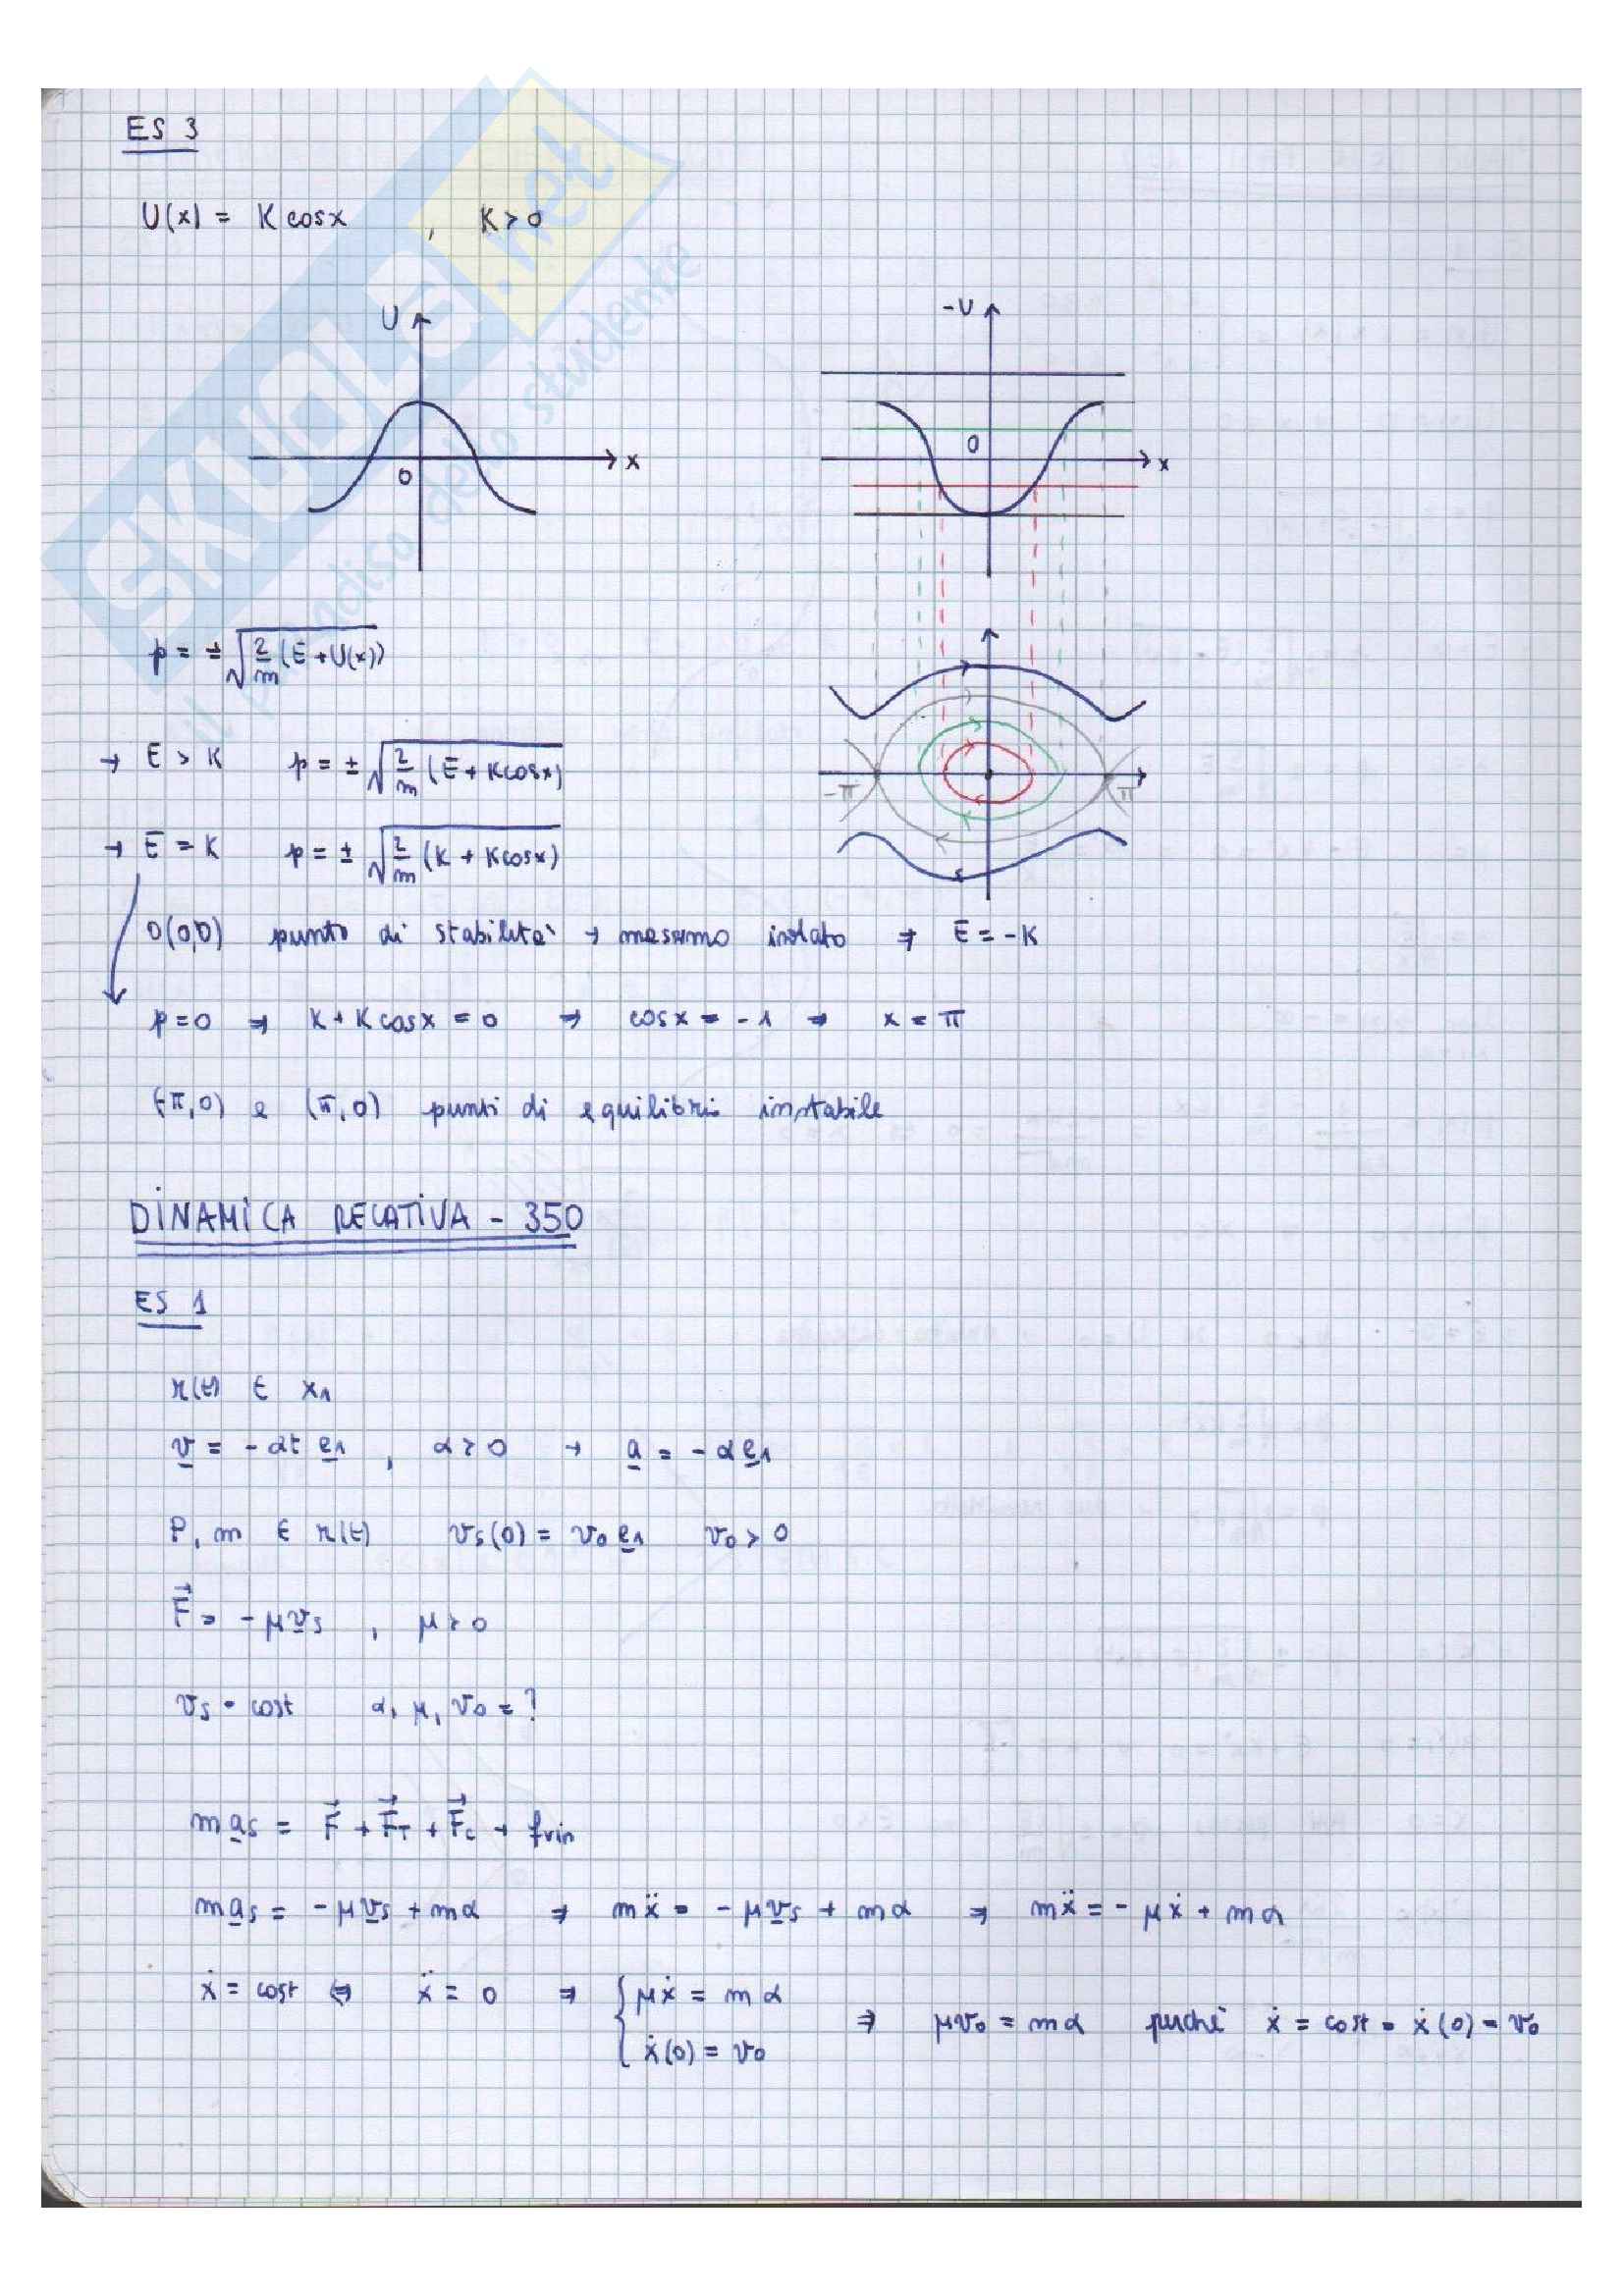 ES 3
U(x) = K cosx , K > 0
U
x
0
-U
0
x
p = ± √(2/m (E + U(x)))
-π
π
→ E > K p = ± √(2/m (E + K cosx))
→ E = K p = ± √(2/m (K + K cosx))
O(0,0) punto di stabilità → massimo isolato ⇒ E = -K
p = 0 ⇒ K + K cosx = 0 ⇒ cosx = -1 ⇒ x = π
(-π,0) e (π,0) punti di equilibrio instabile
DINAMICA RELATIVA - 350
ES 1
r(t) ∈ x₁
v = - αt e₁ , α > 0 → a = - α e₁
P, m ∈ r(t) vs(0) = v₀ e₁ v₀ > 0
F⃗ = - μ vs , μ > 0
vs = cost α, μ, v₀ = ?
m as = F⃗ + F⃗τ + F⃗c + fvin
m as = - μ vs + mα ⇒ mẍ = - μ vs + mα ⇒ mẍ = - μẋ + mα
ẋ = cost ⇔ ẍ = 0 ⇒ { μẋ = mα
ẋ(0) = v₀
⇒ μv₀ = mα perché ẋ = cost = ẋ(0) = v₀
SKUOLA.net
il paradiso dello studente